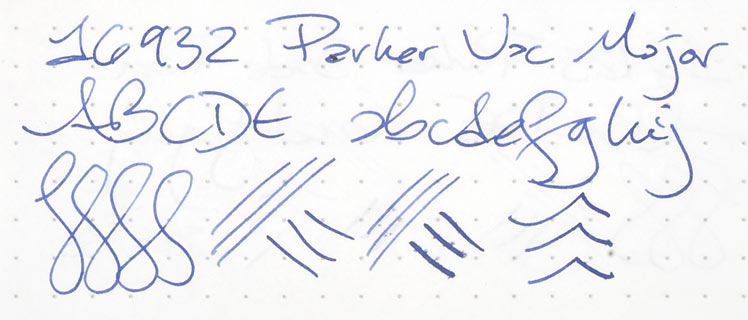 16932 Parker Vac Major
ABCDE abcdefghij